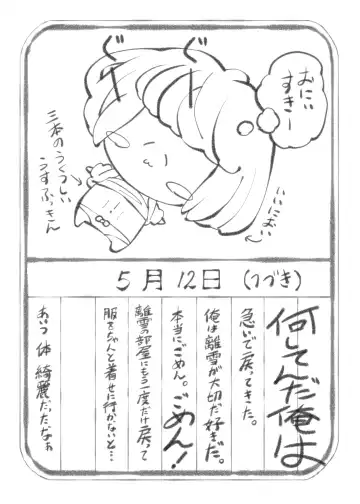 おにぃ
すきー
ぐー
ぐー
いいにおい
三本のうくつしい
うすふっきん
5月12日 (つづき)
何してんだ俺は
急いで戻ってきた。
俺は離雪が大切だ好きだ。
本当にごめん。ごめん!
離雪の部屋にもう一度だけ戻って
服をちゃんと着せに行かないと…
あいつ体綺麗だったなぁ